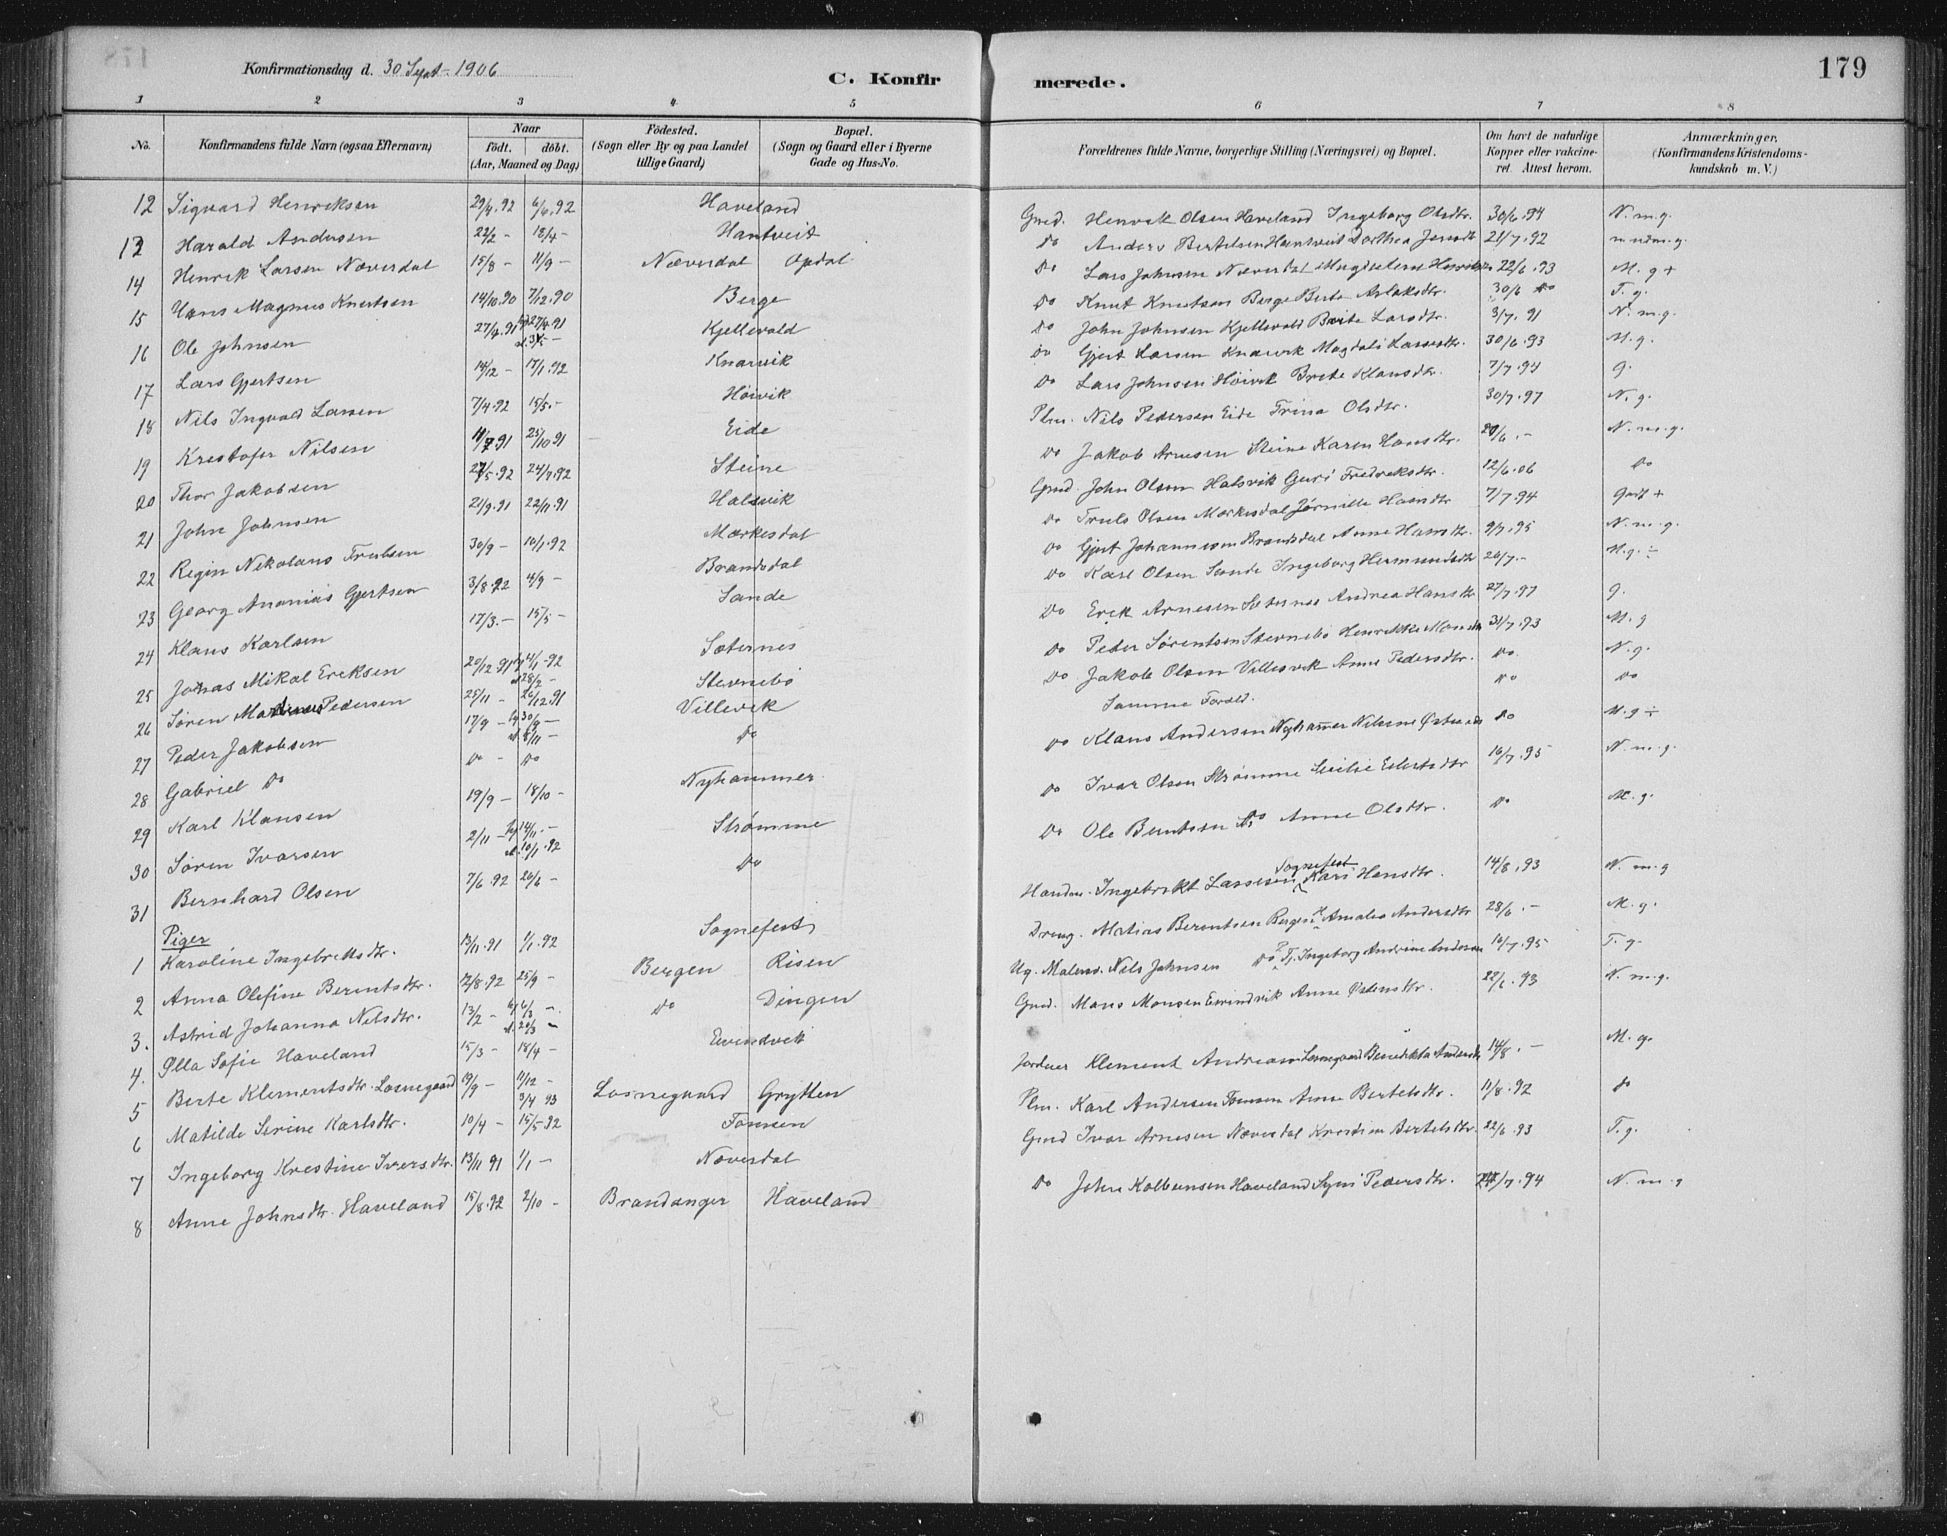 Konfirmationsdag d. 30 Sept. 1906
C. Konfirmerede.
179
1 2 3 4 5 6 7 8
No.
Konfirmandens fulde Navn (ogsaa Efternavn)
Naar
födt. döbt.
(Aar, Maaned og Dag)
Födested.
(Sogn eller By og paa Landet tillige Gaard)
Bopæl.
(Sogn og Gaard eller i Byerne Gade og Hus-No.
Forældrenes fulde Navne, borgerlige Stilling (Næringsvei) og Bopæl.
Om havt de naturlige Kopper eller vakcineret. Attest herom.
Anmærkninger.
(Konfirmandens Kristendomskundskab m. V.)
12 Sigvard Henriksen 29/4.92 6/6.92 Haveland Gmd. Henrik Olsen Haveland Ingeborg Olsdtr. 30/6.94 N.m.g.
13 Harald Andersen 22/2 - 18/4 - Hantveit Do Anders Bertelsen Hantveit Dorthea 21/7.92
14 Henrik Larsen Næverdal 15/8 - 11/9 - Næverdal Opdal Do Lars Johnsen Næverdal 22/6.93 M.g +
15 Hans Magnus Knutsen 14/10.90 7/12.90 Berge Do Knut Knutsen Berge Berte Aslaksdtr. 30/6 Do T.g.
16 Ole Johnsen 27/4.91 27/4.91 Kjellevold Do John Johnsen Kjellevold Brite Larsdtr. 3/7.91 N.m.g.
17 Lars Gjertsen 14/12 - 17/1.92 Knarvik Do Gjert Larsen Knarvik Magdali Larsdtr. 30/6.93 M.g.
18 Nils Ingvald Larsen 7/4.92 15/5.- Høivik Do Lars Johnsen Høivik Brite Klausdtr. 7/7.94 g.
19 Kristofer Nilsen 11/7 91 25/10 91 Eide Plm. Nils Pedersen Eide Trina Olsdtr. 30/7.97 N.g.
20 Thor Jakobsen 27/5.92 24/7.92 Steine Do Jakob Arnesen Steine Karen Hansdtr. 20/6.- N.m.g.
21 John Johnsen 21/9.91 22/11.91 Halsvik Gmd. John Olsen Halsvik Guri Fredriksdtr. 12/6.06 Do
22 Regin Nikolaus Trulsen 30/9 - 10/1.92 Mærkesdal Do Truls Olsen Mærkesdal Jørnille Hansdtr 7/7.94 Godt +
23 Georg Ananias Gjertsen 3/8.92 4/9 - Brandsdal Do Gjert Johannesen Brandsdal Anne Hansdtr. 9/7.95 N.m.g.
24 Klaus Karlsen 17/3.- 15/5 - Sande Do Karl Olsen Sande Ingeborg Hermundsdtr 20/7.- M.g. ÷
25 Jonas Mikal Eriksen 20/12 91 4/1.92 28/2 - Sæternes Do Erik Arnesen Sæternes Andrea Hansdtr 27/7.97 g.
26 Søren Pedersen 25/11 - 26/12.91 Stevnebø Do Peder Sørentsen Stevnebø Henrikke 31/7.93 M.g
27 Peder Jakobsen 17/9 - 30/9 - 8/11 - Villevik Do Jakob Olsen Villesvik Anne Pedersdtr. Do. N.g.
28 Gabriel Do Do - Do Do Samme Foræld. Do Do
29 Karl Klausen 19/9 - 18/10 - Nyhammer Do Klaus Andersen Nyhammer Do M.g ÷
30 Søren Ivarsen 2/11 - 14/11.- 10/1.92 Strømme Do Ivar Olsen Strømme 16/7.95 N.m.g.
31 Bernhard Olsen 7/6.92 26/6 - Do Do Ole Berntsen Do Anne Olsdtr. Do M.g.
Piger
1 Karoline Ingebrettsdtr. 13/11.91 1/1.92 Sognefest Ingebrikt Lassesen Sognefest Kari Hansdtr. 14/8.93 N.m.g
2 Anna Olefine Berentsdtr. 12/8.92 25/9 - Bergen Risen Matias Berentsen Bergen Amalia Andersdtr 28/6.- M.g.
3. Astrid Johanna Nilsdtr. 13/2 - 6/3 - 20/3 - Do Dingen Nils Johnsen Do Ingeborg Andrine 16/7.95 T.g.
4. Olla Sofie Haveland 15/3 - 18/4 - Eivindvik Gmd. Mons Monsen Eivindvik Anne Pedersdtr. 22/6.93 N.m.g.
5 Berte Klementsdtr. Losnegaard 19/9 - 11/12 - Losnegaard Grytten Klement Andreasen Losnegaard Benedikta 14/8.- M.g.
6 Matilde Serine Karlsdtr. 10/4 - 3/4 93 15/5-92 Tonsen Plm. Karl Andersen Tonsen Anne Bertelsdtr. 11/8.92 Do
7 Ingeborg Kristine Iversdtr. 13/11 91 1/1 - Næverdal Gmd Ivar Arnesen Næverdal Bertelsdtr. 22/6.93 T.g.
8 Anne Johnsdtr. Haveland 15/8.92 2/10 - Brandanger Haveland Do John Kolbeinsen Haveland Pedersdtr. /7.94 N.m.g